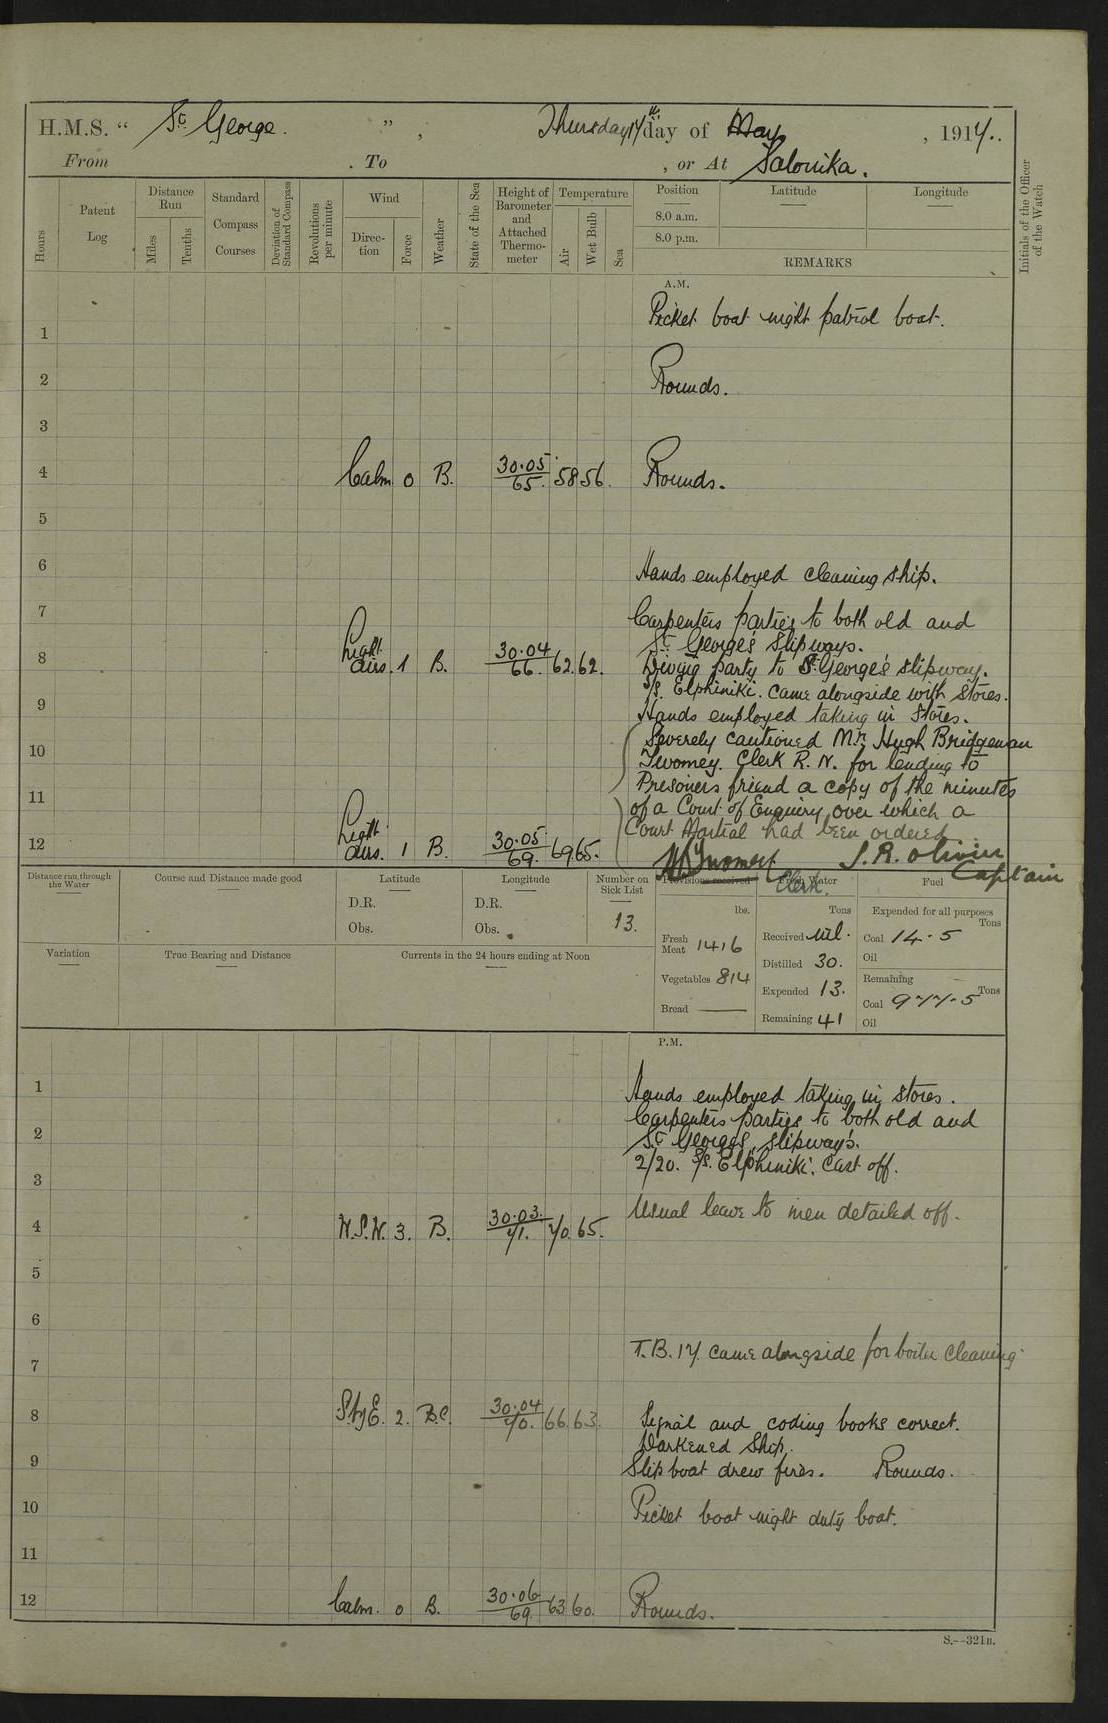 H.M.S. “ St George. ” , Thursday 17th day of May , 1917.
From . To , or At Salonika.
Hours
Patent Log
Distance Run
Miles
Tenths
Standard Compass Courses
Deviation of Standard Compass
Revolutions per minute
Wind
Direc-tion
Force
Weather
State of the Sea
Height of Barometer and Attached Thermo-meter
Temperature
Air
Wet Bulb
Sea
Position Latitude Longitude
8.0 a.m.
8.0 p.m.
REMARKS
Initials of the Officer of the Watch
A.M.
1 Picket boat night patrol boat.
2 Rounds.
3
4 Calm 0 B. 30.05/65. 58 56. Rounds.
5
6 Hands employed cleaning ship.
7 Carpenters parties to both old and
St George's slipways.
8 Light airs. 1 B. 30.04/66. 62. 62. Diving party to St George's slipway.
S/S. Elphiniki. came alongside with stores.
9 Hands employed taking in stores.
Severely cautioned Mr. Hugh Bridgeman
10 Twomey. Clerk R.N. for lending to
Prisoners friend a copy of the minutes
11 of a Court of Enquiry over which a
Court Martial had been ordered
12 Light airs. 1 B. 30.05/69. 69. 65.
HBTwomey S.R. Olivier
Clerk. Captain
Distance run through the Water
Course and Distance made good
Latitude
D.R.
Obs.
Longitude
D.R.
Obs.
Number on Sick List
13.
Provisions received
lbs.
Fresh Meat 1416
Vegetables 814
Bread —
Fresh Water
Tons
Received nil.
Distilled 30.
Expended 13.
Remaining 41
Fuel
Expended for all purposes
Tons
Coal 14.5
Oil
Remaining
Tons
Coal 977.5
Oil
Variation
True Bearing and Distance
Currents in the 24 hours ending at Noon
P.M.
1 Hands employed taking in stores.
Carpenters parties to both old and
2 St George's slipways.
2/20. S/S. Elphiniki. Cast off.
3
4 W.S.W. 3. B. 30.03./71. 70. 65. Usual leave to men detailed off.
5
6
7 T.B. 17. came alongside for boiler cleaning
8 S.byE. 2. B.C. 30.04/70. 66. 63. Signal and coding books correct.
Darkened Ship.
9 Slip boat drew fires. Rounds.
10 Picket boat night duty boat.
11
12 Calm. 0 B. 30.06/69. 63 60. Rounds.
S.—321B.